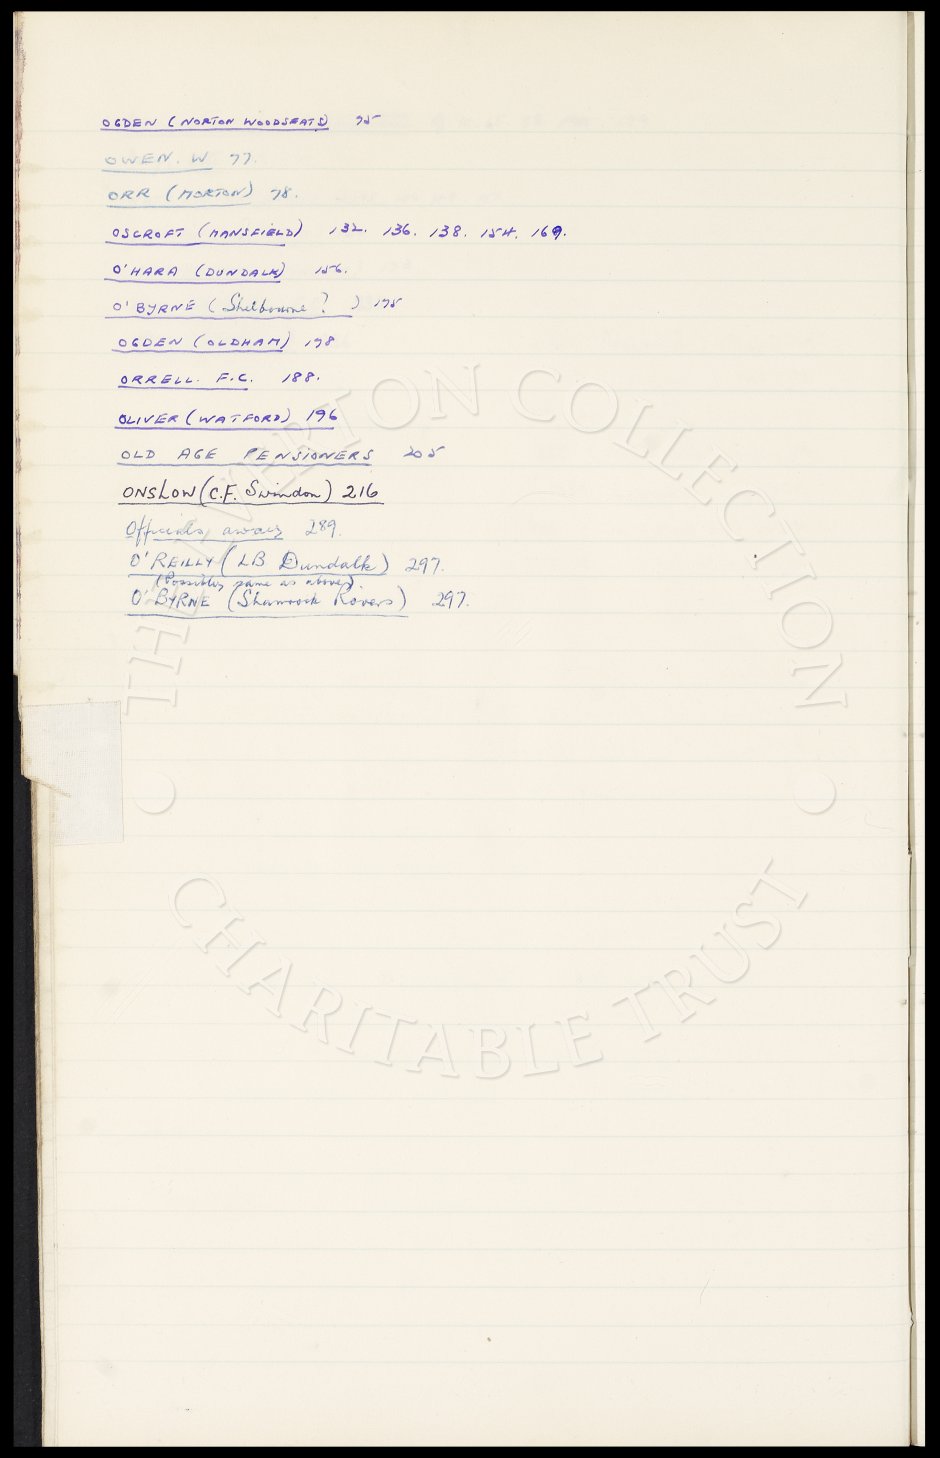 OGDEN (NORTON WOODSEATS) 75
OWEN. W 77.
ORR (MORTON) 78.
OSCROFT (MANSFIELD) 132. 136. 138. 154. 169.
O'HARA (DUNDALK) 156.
O'BYRNE (Shelbourne ? ) 175
OGDEN (OLDHAM) 178
ORRELL. F.C. 188.
OLIVER (WATFORD) 196
OLD AGE PENSIONERS 205
ONSLOW (C.F. Swindon) 216
Officials away 289.
O'REILLY (LB Dundalk) 297.
(Possibly same as above).
O'BYRNE (Shamrock Rovers) 297.
THE EVERTON COLLECTION
CHARITABLE TRUST